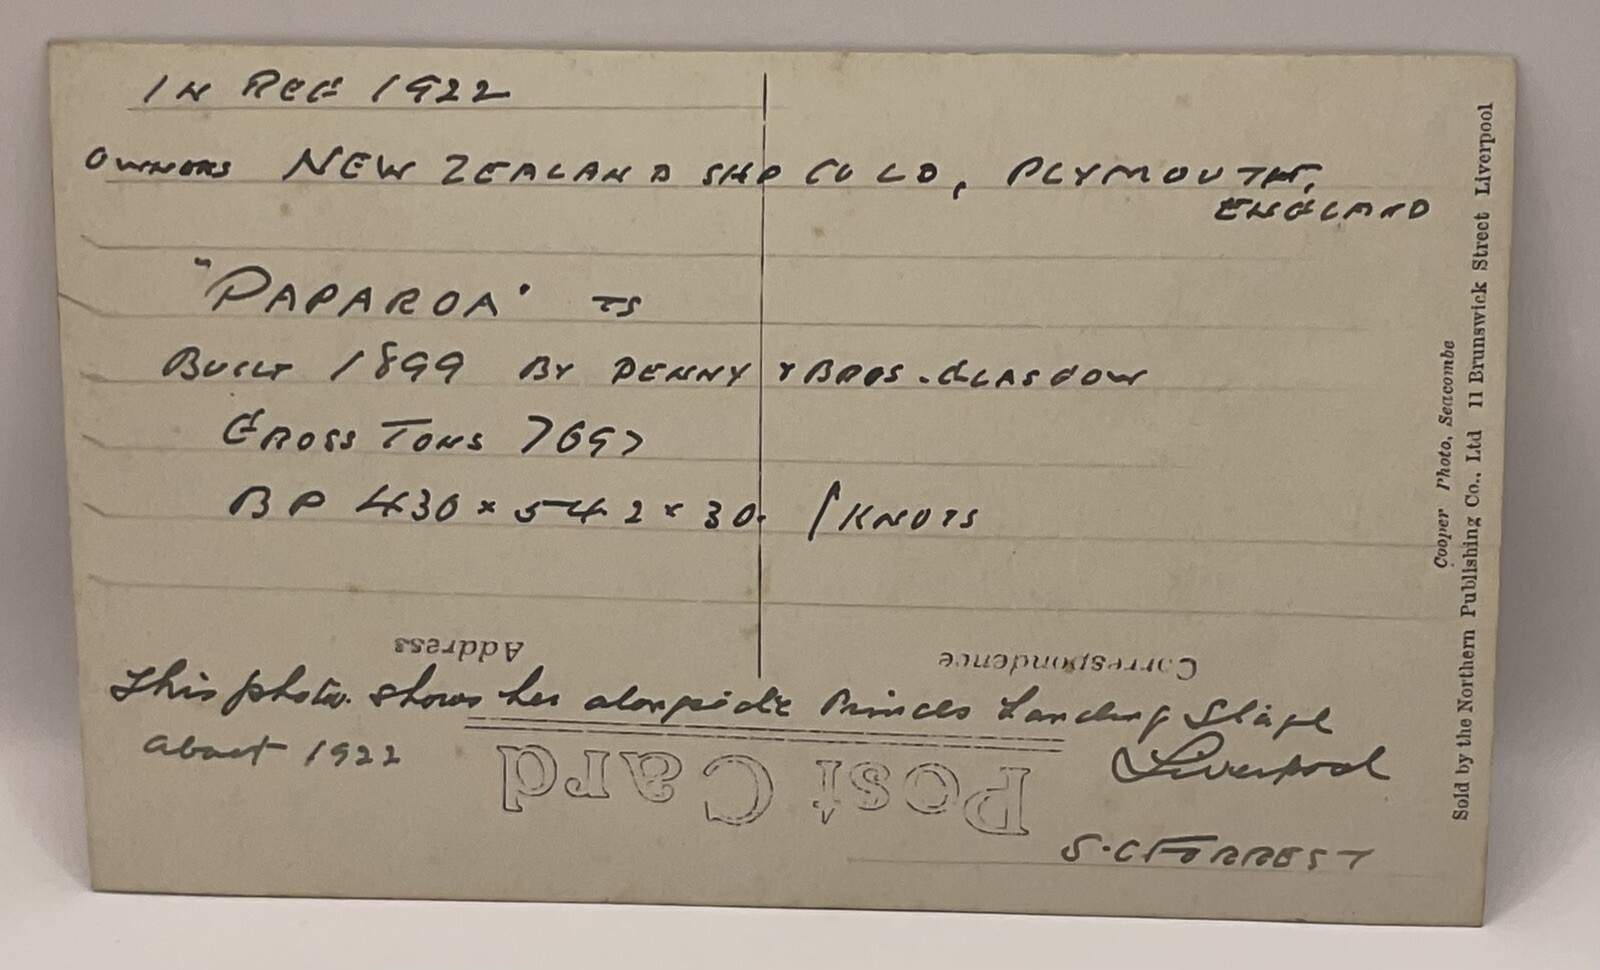 IN REG 1922
OWNERS NEW ZEALAND SHP CO LD, PLYMOUTH,
ENGLAND
"PAPAROA" TS
BUILT 1899 BY DENNY & BROS. GLASGOW
GROSS TONS 7697
BP 430 × 54 2 × 30. KNOTS
Address
Correspondence
This photo. shows her alongside Princes Landing Stage
about 1922
Liverpool
Post Card
S.C FORREST
Cooper Photo, Seacombe
Sold by the Northern Publishing Co., Ltd 11 Brunswick Street Liverpool